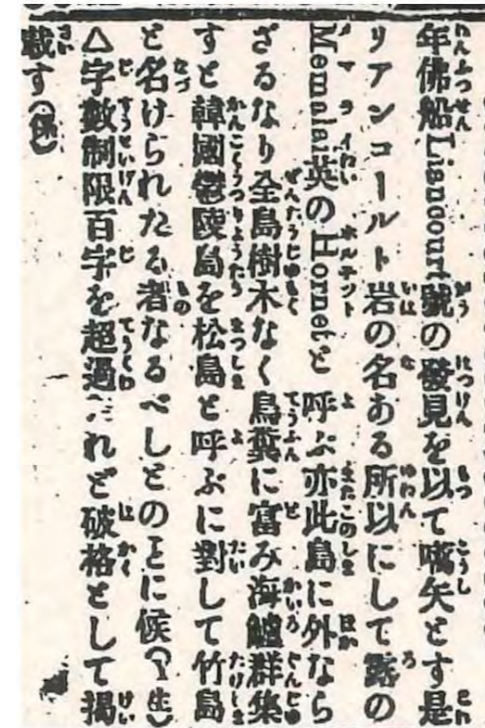 年佛船Liancourt號の發見を以て嚆矢とす是
リアンコールト岩の名ある所以にして露の
Memalai英の Hornetと呼ぶ亦此島に外なら
ざるなり全島樹木なく鳥糞に富み海驢群集
すと韓國鬱陵島を松島と呼ぶに對して竹島
と名けられたる者なるべしとのとに候(生)
△字數制限百字を超過 れど破格として揭
載す(係)